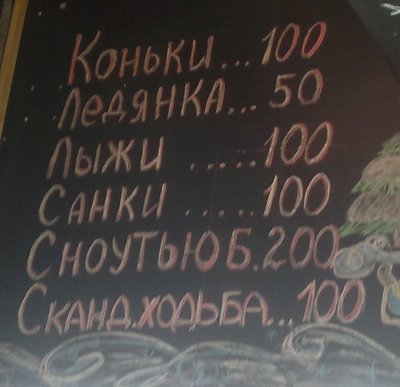 Коньки...100
Ледянка...50
Лыжи .....100
Санки .....100
Сноутьюб.200
Сканд.ходьба...100